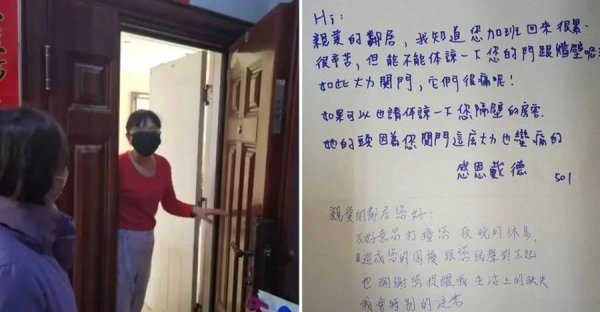 Hi:
親愛的鄰居，我知道您加班回來很累
很辛苦，但能不能体諒一下您的門跟牆壁呢
如此大力關門，它們很痛呢!
如果可以也請体諒一下您隔壁的房客
她的頭因為您關門這麼大力也蠻痛的
感恩戴德
501
親愛的鄰居您好:
不好意思打擾您夜晚的休息,
造成您的困擾跟您說聲對不起
也謝謝您提醒我生活上的缺失
我會特別的注意